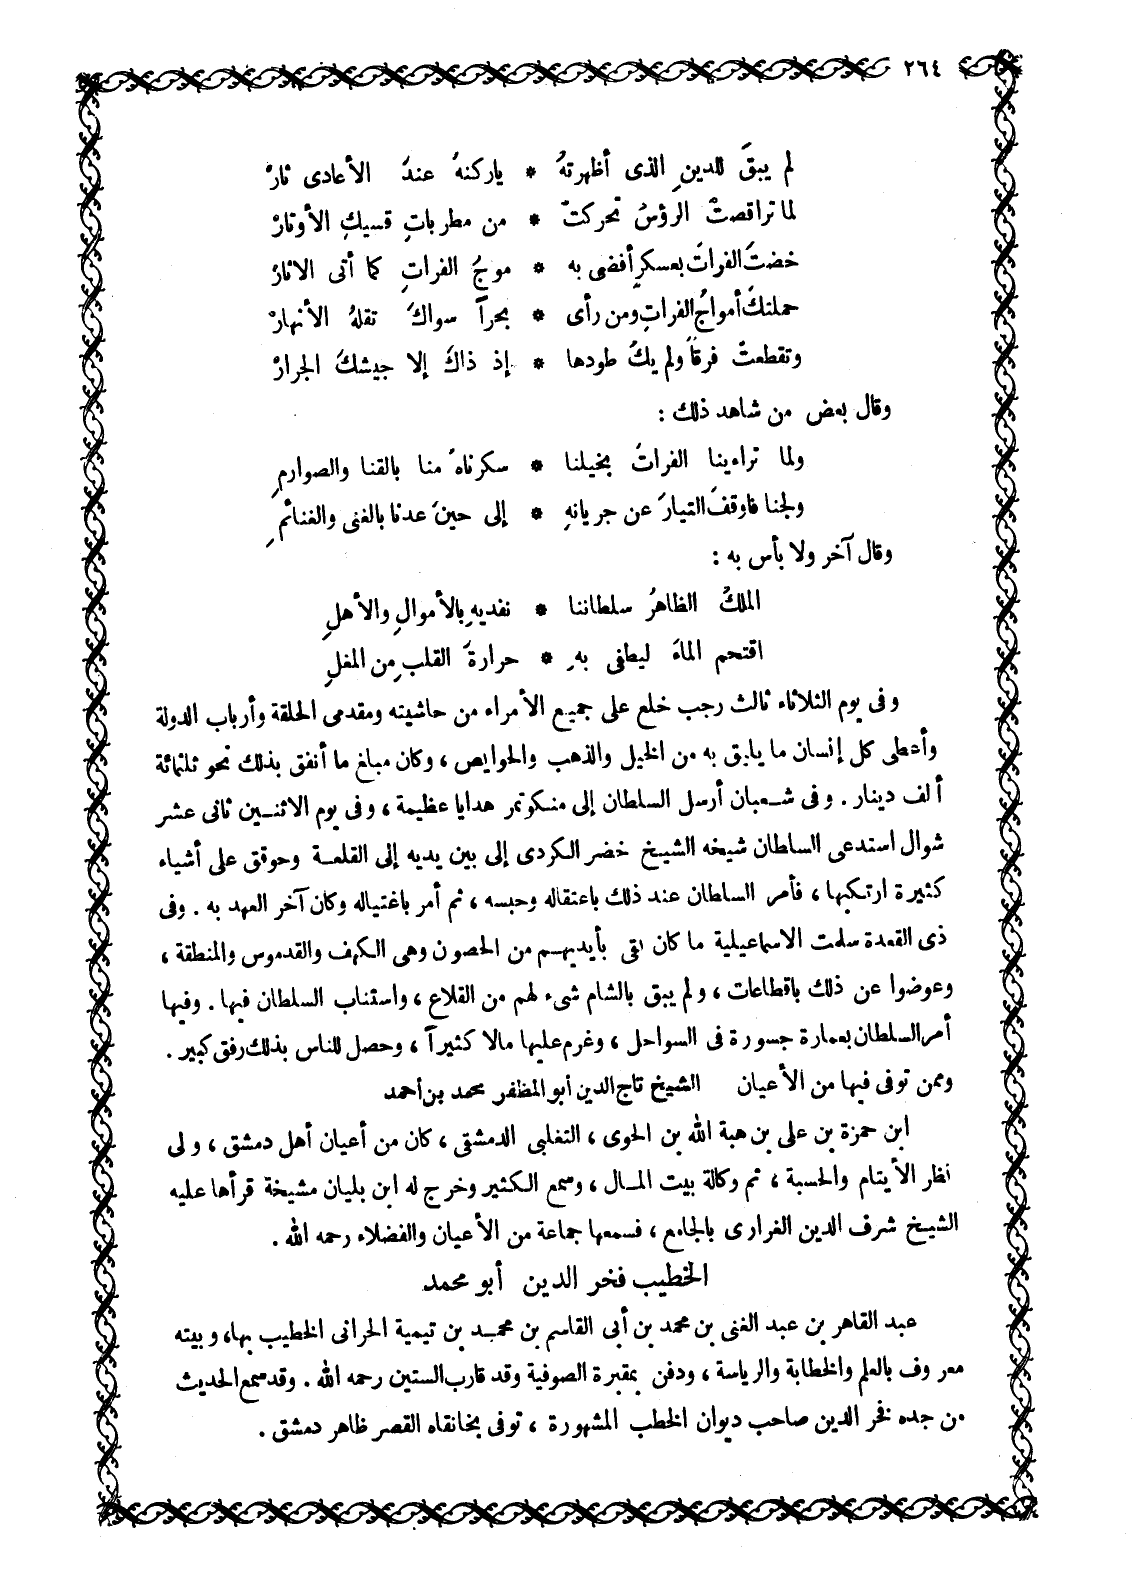 ٢٦٤
لم يبقَ للدينِ الذى أظهرتهُ * ياركنهُ عندَ الأعادى ثارْ
لما تراقصتْ الرؤسُ تحركتْ * من مطرباتِ قسيكِ الأوتارْ
خضتَ الفراتَ بعسكرٍ أفضى به * موجُ الفراتِ كما أتى الاثارْ
حملتكَ أمواجُ الفراتِ ومن رأى * بحراً سواكَ تقلهُ الأنهارْ
وتقطعتْ فرقاً ولم يكُ طودها * إذ ذاكَ إلا جيشكَ الجرارْ
وقال بعض من شاهد ذلك :
ولما تراءينا الفراتَ بخيلنا * سكرناهُ منا بالقنا والصوارمِ
ولجنا فاوقفَ التيارَ عن جريانهِ * إلى حينَ عدنا بالغنى والغنائمِ
وقال آخر ولا بأس به :
الملكُ الظاهرُ سلطاننا * نفديهِ بالأموالِ والأهلِ
اقتحم الماءَ ليطفى بهِ * حرارةَ القلبِ من المغلِ
وفى يوم الثلاثاء ثالث رجب خلع على جميع الأمراء من حاشيته ومقدمى الحلقة وأرباب الدولة
وأعطى كل إنسان ما يليق به من الخيل والذهب والحوايص ، وكان مبلغ ما أنفق بذلك نحو ثلثمائة
ألف دينار . وفى شعبان أرسل السلطان إلى منكوتمر هدايا عظيمة ، وفى يوم الاثنين ثانى عشر
شوال استدعى السلطان شيخه الشيخ خضر الكردى إلى بين يديه إلى القلعة وحوقق على أشياء
كثيرة ارتكبها ، فأمر السلطان عند ذلك باعتقاله وحبسه ، ثم أمر باغتياله وكان آخر العهد به . وفى
ذى القعدة سلمت الاسماعيلية ما كان بقى بأيديهم من الحصون وهى الكهف والقدموس والمنطقة ،
وعوضوا عن ذلك باقطاعات ، ولم يبق بالشام شىء لهم من القلاع ، واستناب السلطان فيها . وفيها
أمر السلطان بعمارة جسورة فى السواحل ، وغرم عليها مالا كثيراً ، وحصل للناس بذلك رفق كبير .
وممن توفى فيها من الأعيان الشيخ تاج الدين أبو المظفر محمد بن أحمد
ابن حمزة بن على بن هبة الله بن الحوى ، التغلبى الدمشقى ، كان من أعيان أهل دمشق ، ولى
نظر الأيتام والحسبة ، ثم وكالة بيت المال ، وسمع الكثير وخرج له ابن بليان مشيخة قرأها عليه
الشيخ شرف الدين الغرارى بالجامع ، فسمعها جماعة من الأعيان والفضلاء رحمه الله .
الخطيب فخر الدين أبو محمد
عبد القاهر بن عبد الغنى بن محمد بن أبى القاسم بن محمد بن تيمية الحرانى الخطيب بها ، وبيته
معروف بالعلم والخطابة والرياسة ، ودفن بمقبرة الصوفية وقد قارب الستين رحمه الله . وقد سمع الحديث
من جده فخر الدين صاحب ديوان الخطب المشهورة ، توفى بخانقاه القصر ظاهر دمشق .